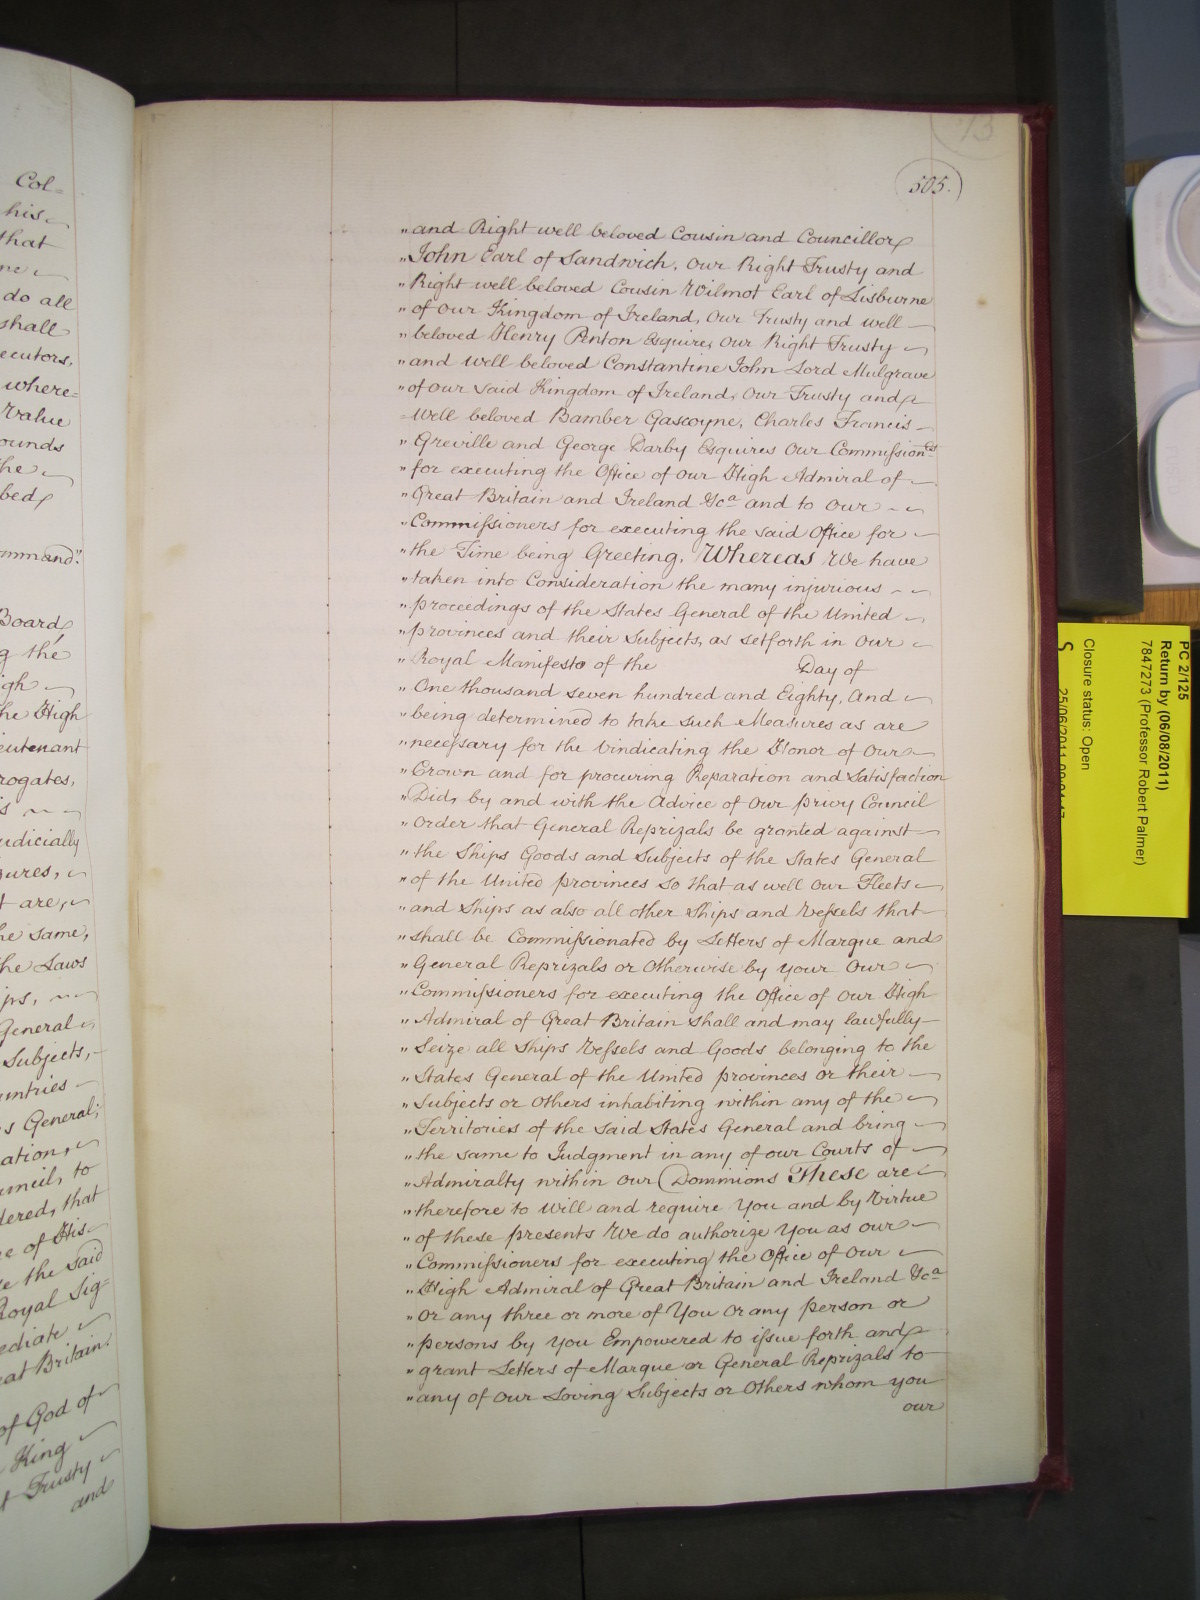 Col=
his
that
do all
shall
ecutors,
where=
value
ounds
he
bed
ommand"
Board,
g the
igh
he High
eutenant
rogates,
udicially
zures,
t are,
he same,
he Laws
ips,
General
Subjects,
untries
s General;
ation,
uncil, to
dered, that
e of His
e the said
Royal Sig=
ediate
eat Britain.
of God of
King
t Trusty
and
73
505.
"and Right well beloved Cousin and Councillor
"John Earl of Sandwich, Our Right Trusty and
"Right well beloved Cousin Wilmot Earl of Lisburne
"of Our Kingdom of Ireland, Our Trusty and well
"beloved Henry Penton Esquire, Our Right Trusty
"and well beloved Constantine John Lord Mulgrave
"of Our said Kingdom of Ireland, Our Trusty and
=well beloved Bamber Gascoyne, Charles Francis
"Greville and George Darby Esquires Our Commissionrs
"for executing the Office of Our High Admiral of
"Great Britain and Ireland &ca and to Our
"Commissioners for executing the said Office for
"the Time being Greeting. Whereas We have
"taken into Consideration the many injurious
"proceedings of the States General of the United
"provinces and their Subjects, as setforth in Our
"Royal Manifesto of the Day of
"One thousand seven hundred and Eighty, And
"being determined to take such Measures as are
"necessary for the Vindicating the Honor of Our
"Crown and for procuring Reparation and Satisfaction
"Did, by and with the Advice of Our privy Council
"Order that General Reprizals be granted against
"the Ships Goods and Subjects of the States General
"of the United provinces so that as well Our Fleets
"and Ships as also all other Ships and Vessels that
"shall be Commissionated by Letters of Marque and
"General Reprizals or Otherwise by your Our
"Commissioners for executing the Office of Our High
"Admiral of Great Britain shall and may lawfully
"Seize all Ships Vessels and Goods belonging to the
"States General of the United provinces or their
"Subjects or Others inhabiting within any of the
"Territories of the said States General and bring
"the same to Judgment in any of our Courts of
"Admiralty within Our Dominions These are
"therefore to Will and require You and by Virtue
"of these presents We do authorize You as our
"Commissioners for executing the Office of Our
"High Admiral of Great Britain and Ireland &ca
"or any three or more of You Or any person or
"persons by You Empowered to issue forth and
"grant Letters of Marque or General Reprizals to
"any of Our Loving Subjects or Others whom you
our
PC 2/125
Return by (06/08/2011)
7847273 (Professor Robert Palmer)
Closure status: Open
S